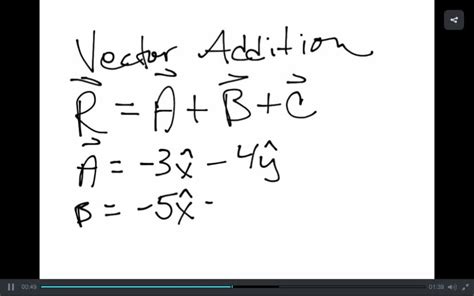 Vector Addition
R⃗ = A⃗ + B⃗ + C⃗
A⃗ = -3x̂ - 4ŷ
B = -5x̂ -
00:49
01:39